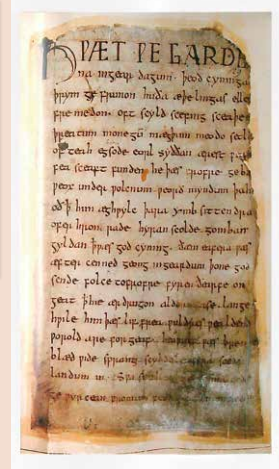 HǷÆT ǷE GARDE
na ingear dagum · þeod cyninga
þrym ge frunon huða æþelingas elle
fremedon · oft scyld scefing sceaþe
þreatum monegū mægþum meodo setla
of teah egsode eorl syððan ærest
fea sceaft funden he þæs frofre geba
ƿeox under ƿolcnum ƿeorð myndum þah
oð ꝥ him æghƿylc þara ymb sittendra
ofer hron rade hyran scolde gomban
gyldan ꝥ ƿæs god cyning · ðæm eafera ƿæs
æfter cenned geong ingeardum þone god
sende folce tofrofre fyren ðearfe on
geat ꝥ hie ær drugon aldor ase · lange
hƿile him þæs lif frea ƿuldres ƿealdend
ƿorold are for geaf · ƿæs breme
blæd ƿide sprang
landum in · Sƿa
ge ƿyrcean fromum